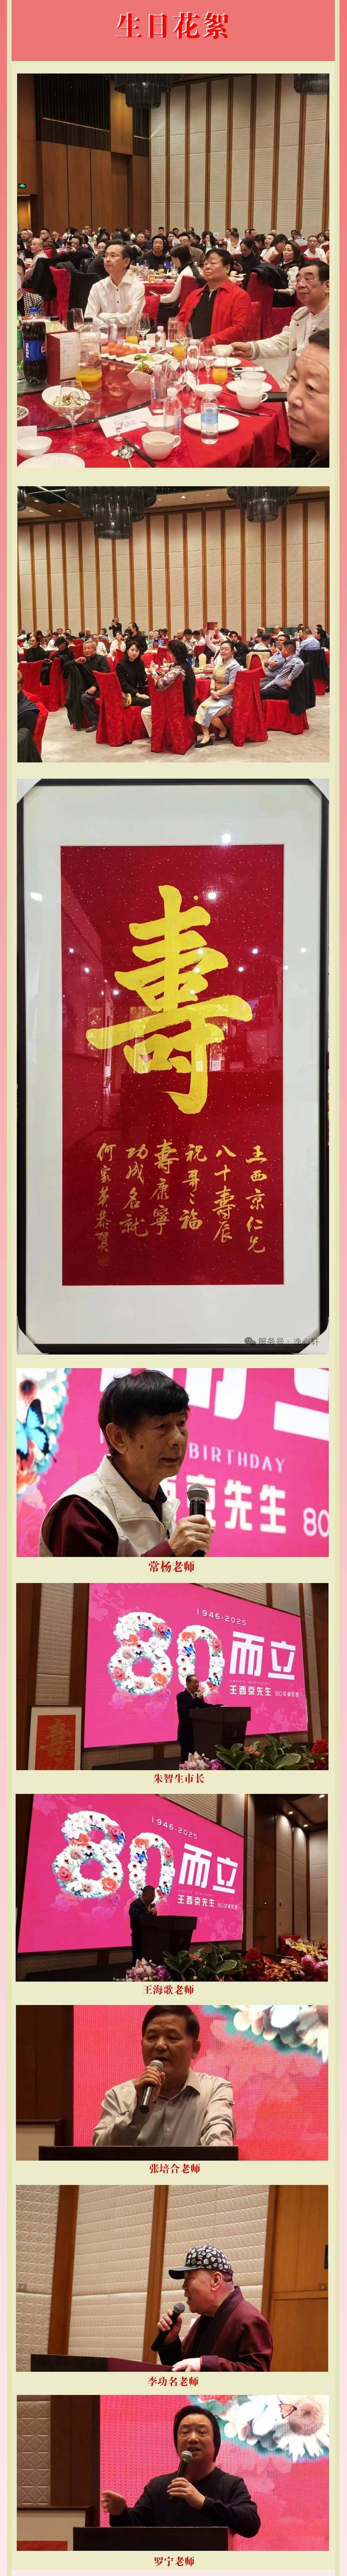 生日花絮
壽
王西京仁兄
八十壽辰
祝君之福
壽康寧
功成名就
何家英恭賀
服务号·逸心轩
BIRTHDAY
京先生 80
常杨老师
1946-2025
80而立
王西京先生 80华诞庆典
寿
朱智生市长
1946-2025
80而立
王西京先生 80华诞庆典
王海歌老师
张培合老师
李功名老师
罗宁老师